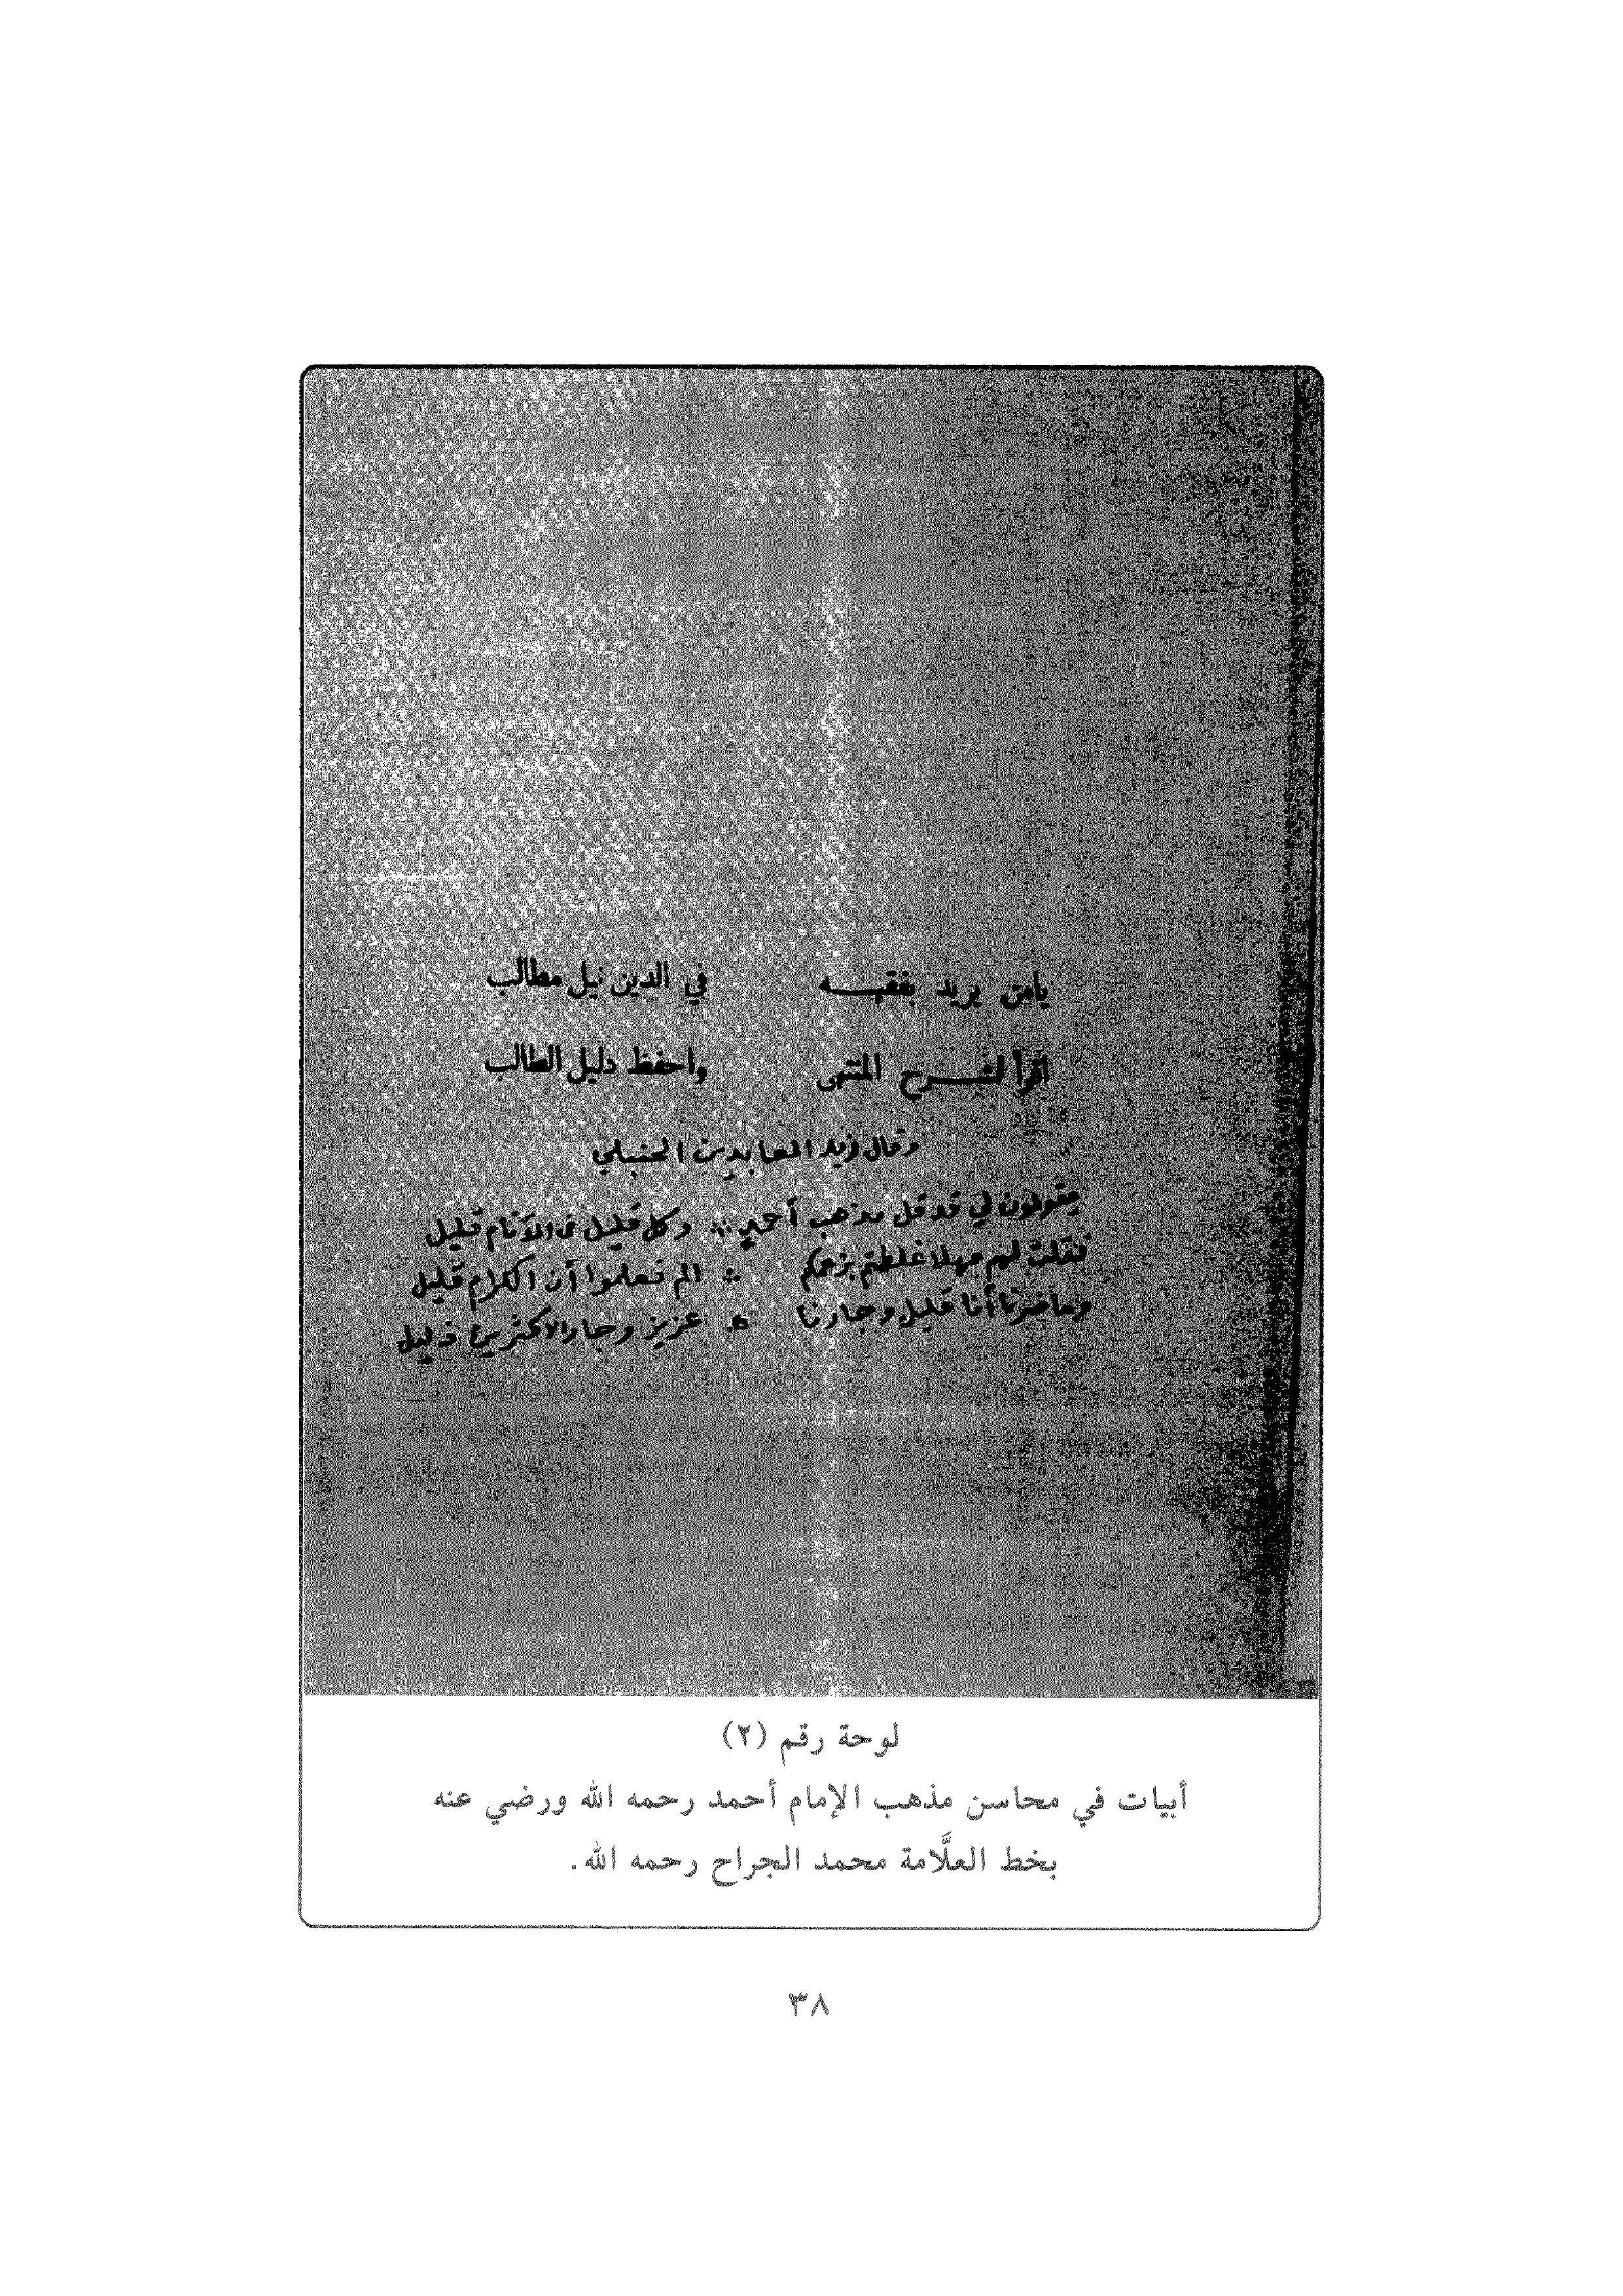 يامن يريد بفقهه في الدين نيل مطالب
اقرأ لشرح المنتهى واحفظ دليل الطالب
وقال زيد العابدين الحنبلي
يقولون لي قد قل مذهب أحمد ∴ وكل قليل في الأنام قليل
فقلت لهم مهلا غلطتم بزعمكم ∴ الم تعلموا أن الكرام قليل
وماضرنا أنا قليل وجارنا ∴ عزيز وجار الأكثرين ذليل
لوحة رقم (٢)
أبيات في محاسن مذهب الإمام أحمد رحمه الله ورضي عنه
بخط العلَّامة محمد الجراح رحمه الله.
٣٨